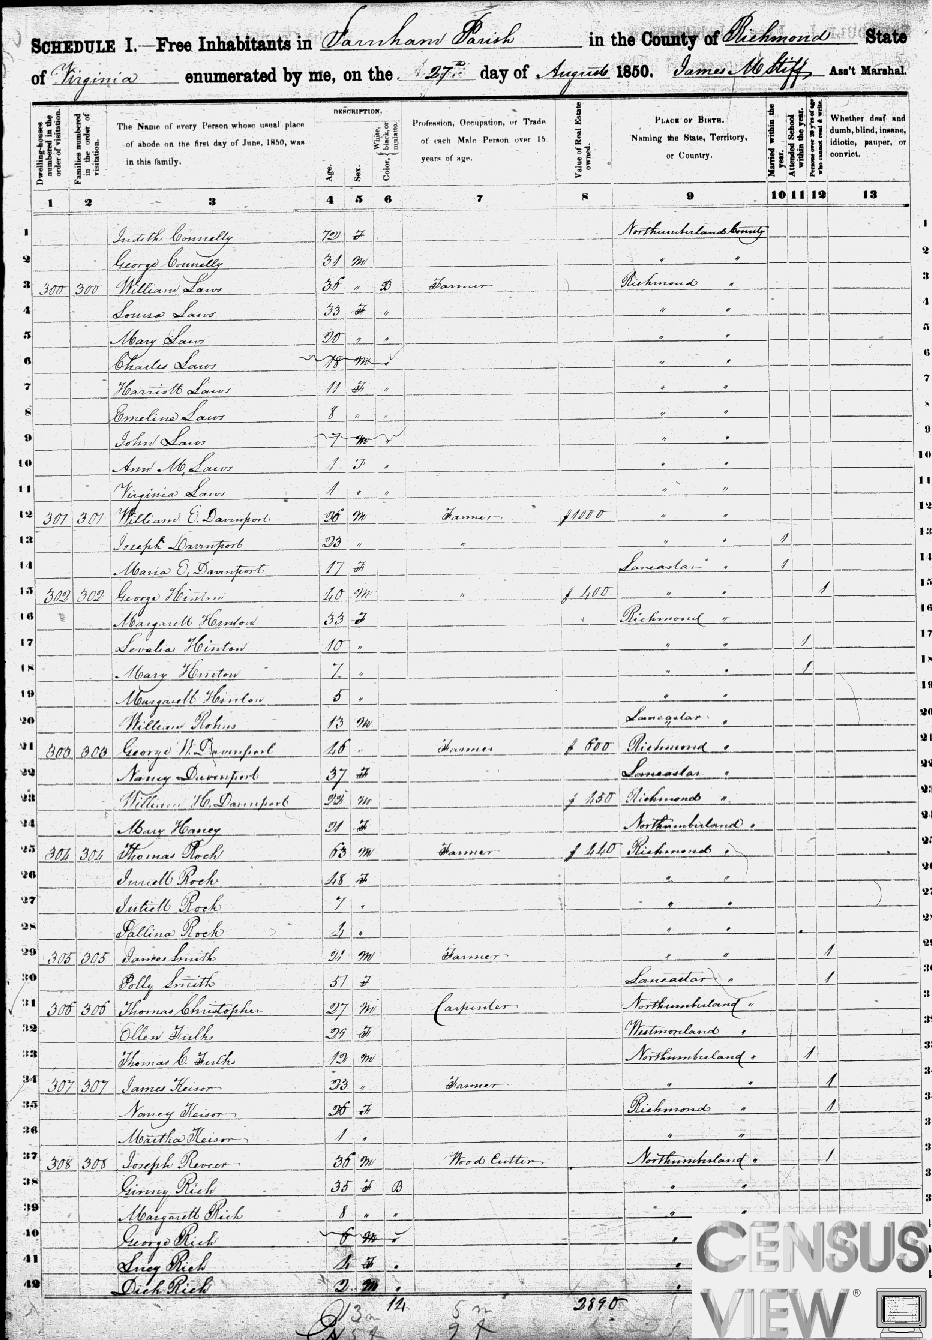 SCHEDULE I.—Free Inhabitants in Farnham Parish in the County of Richmond State
of Virginia enumerated by me, on the 27th day of August 1850. James M Stiff Ass't Marshal.
Dwelling-houses numbered in the order of visitation.
Families numbered in the order of visitation.
The Name of every Person whose usual place of abode on the first day of June, 1850, was in this family.
DESCRIPTION.
Age.
Sex.
Color, White, black, or mulatto.
Profession, Occupation, or Trade of each Male Person over 15 years of age.
Value of Real Estate owned.
PLACE OF BIRTH. Naming the State, Territory, or Country.
Married within the year.
Attended School within the year.
Persons over 20 y'rs of age who cannot read & write.
Whether deaf and dumb, blind, insane, idiotic, pauper, or convict.
1 2 3 4 5 6 7 8 9 10 11 12 13
1 Judith Connelly 72 F Northumberland County 1
2 George Connelly 31 M " " 2
3 300 300 William Laws 36 " B Farmer Richmond " 3
4 Louisa Laws 33 F " " " 4
5 Mary Laws 20 " " " " 5
6 Charles Laws 18 M " " " 6
7 Harriett Laws 11 F " " " 7
8 Emeline Laws 8 " " " " 8
9 John Laws 7 M " " " 9
10 Ann M. Laws 1 F " " " 10
11 Virginia Laws 1 " " " " 11
12 301 301 William E. Davenport 26 M Farmer $1000 " " 12
13 Joseph Davenport 23 " " " " 1 13
14 Maria E. Davenport 17 F Lancaster " 1 14
15 302 302 George Hinton 40 M " $400 " " 1 15
16 Margarett Hinton 33 F Richmond " 16
17 Lovalia Hinton 10 " " " 1 17
18 Mary Hinton 7 " " " 1 18
19 Margarett Hinton 5 " " " 19
20 William Robins 13 M Lancaster " 20
21 303 303 George W. Davenport 46 " Farmer $600 Richmond " 21
22 Nancy Davenport 37 F Lancaster " 22
23 William H. Davenport 22 M $450 Richmond " 23
24 Mary Haney 21 F Northumberland " 24
25 304 304 Thomas Rock 63 M Farmer $440 Richmond " 25
26 Rock 48 F " " 26
27 Juliett Rock 7 " " " 27
28 Pallina Rock " " " 28
29 305 305 James Smith 21 M Farmer " " 1 29
30 Polly Smith 51 F Lancaster " 1 30
31 306 306 Thomas Christopher 27 M Carpenter Northumberland " 31
32 Ollen Fulks 29 F Westmoreland " 32
33 Thomas C. Fulks 12 M Northumberland " 1 33
34 307 307 James Keisor 23 " Farmer " " 1 34
35 Nancy Keisor 26 F Richmond " 1 35
36 Martha Keisor 1 " " " 36
37 308 308 Joseph Reveer 36 M Wood Cutter Northumberland " 1 37
38 Ginny Rich 35 F B " " 38
39 Margarett Rich 8 " " " " 39
40 George Rich 6 M " "
41 Lucy Rich 4 F " "
42 Dick Rich 2 M " "
14 2890
CENSUS
VIEW®